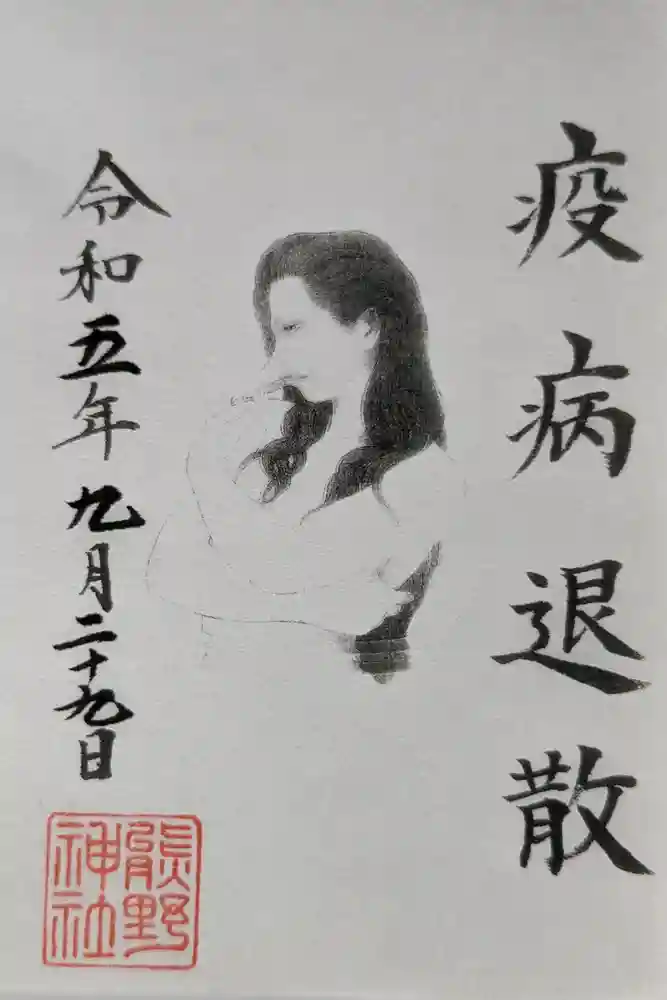 疫病退散
令和五年九月二十九日
熊野
神社